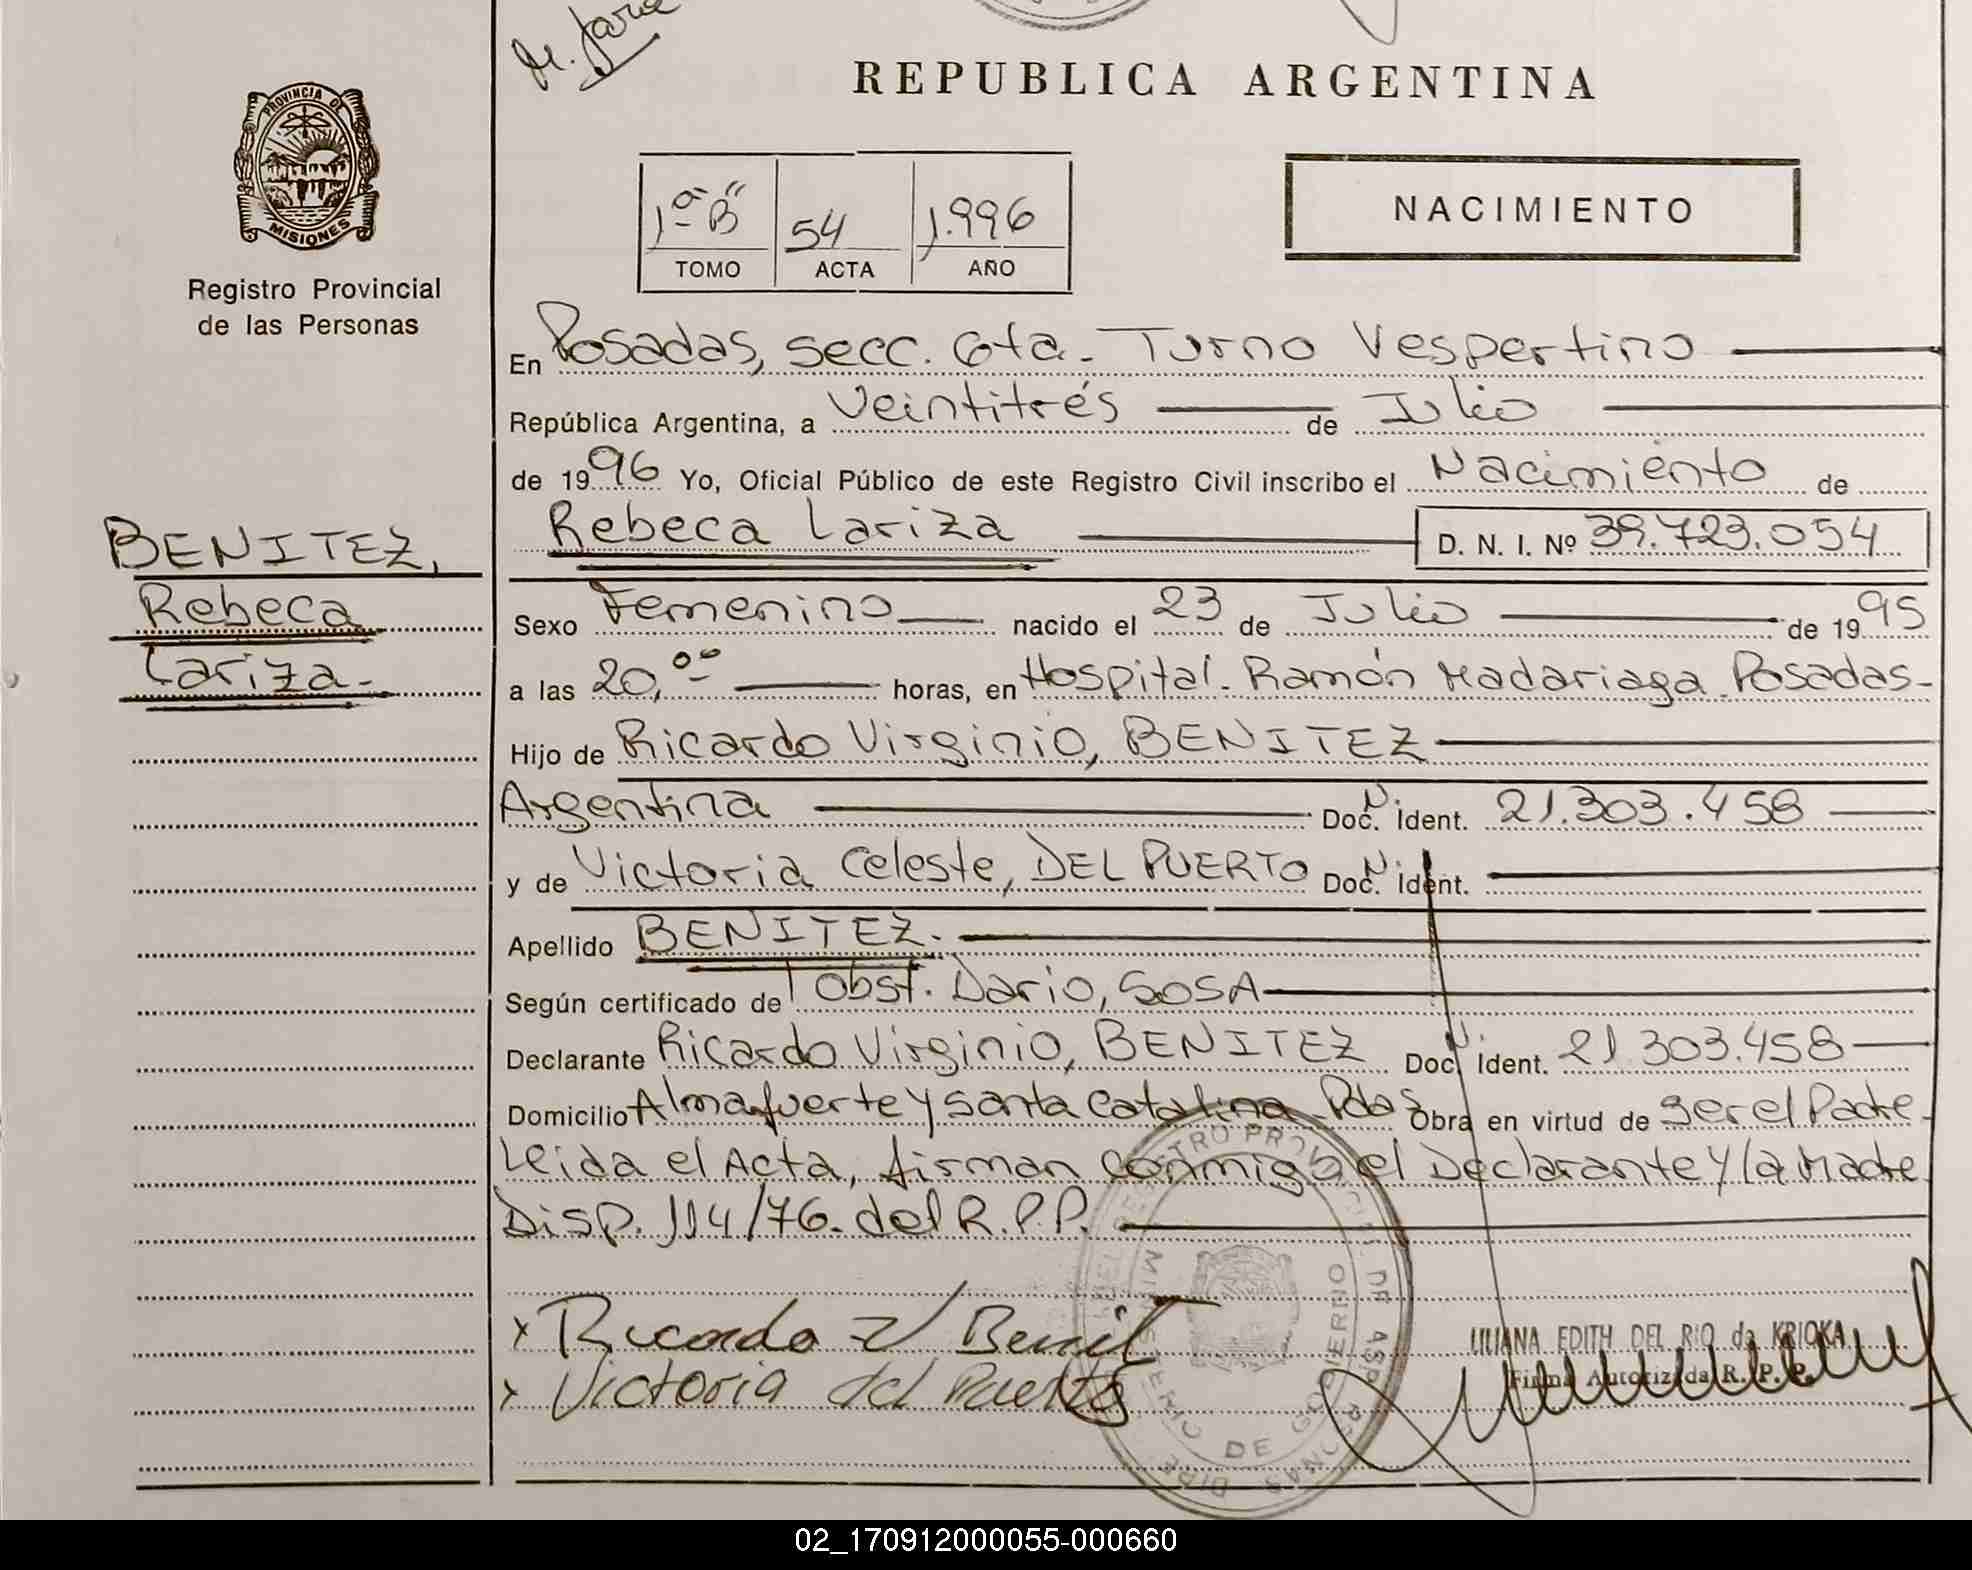 REPUBLICA ARGENTINA
PROVINCIA DE
MISIONES
Registro Provincial
de las Personas
1ª "B" 54 1.996
TOMO ACTA AÑO
NACIMIENTO
En Posadas, secc. 6ta. Turno Vespertino
República Argentina, a Veintitrés de Julio
de 1996 Yo, Oficial Público de este Registro Civil inscribo el Nacimiento de
Rebeca Lariza D. N. I. Nº 39.723.054
BENITEZ,
Rebeca
Lariza.
Sexo Femenino nacido el 23 de Julio de 1995
a las 20,00 horas, en Hospital. Ramón Madariaga. Posadas.
Hijo de Ricardo Virginio, BENITEZ
Argentina Doc. N. Ident. 21.303.458
y de Victoria Celeste, DEL PUERTO Doc. N. Ident.
Apellido BENITEZ.
Según certificado de Obst. Dario, SOSA
Declarante Ricardo Virginio, BENITEZ Doc. N. Ident. 21.303.458
Domicilio Almafuerte y santa Catalina Pdas Obra en virtud de ser el Padre.
Leida el Acta, firman conmigo el Declarante y la Madre
Disp. 114/76. del R.P.P.
Ricardo V Benit
Victoria del Puerto
LILIANA EDITH DEL RIO de KRIOKA
Firma Autorizada R. P. P.
MINISTERIO DE GOBIERNO
02_170912000055-000660